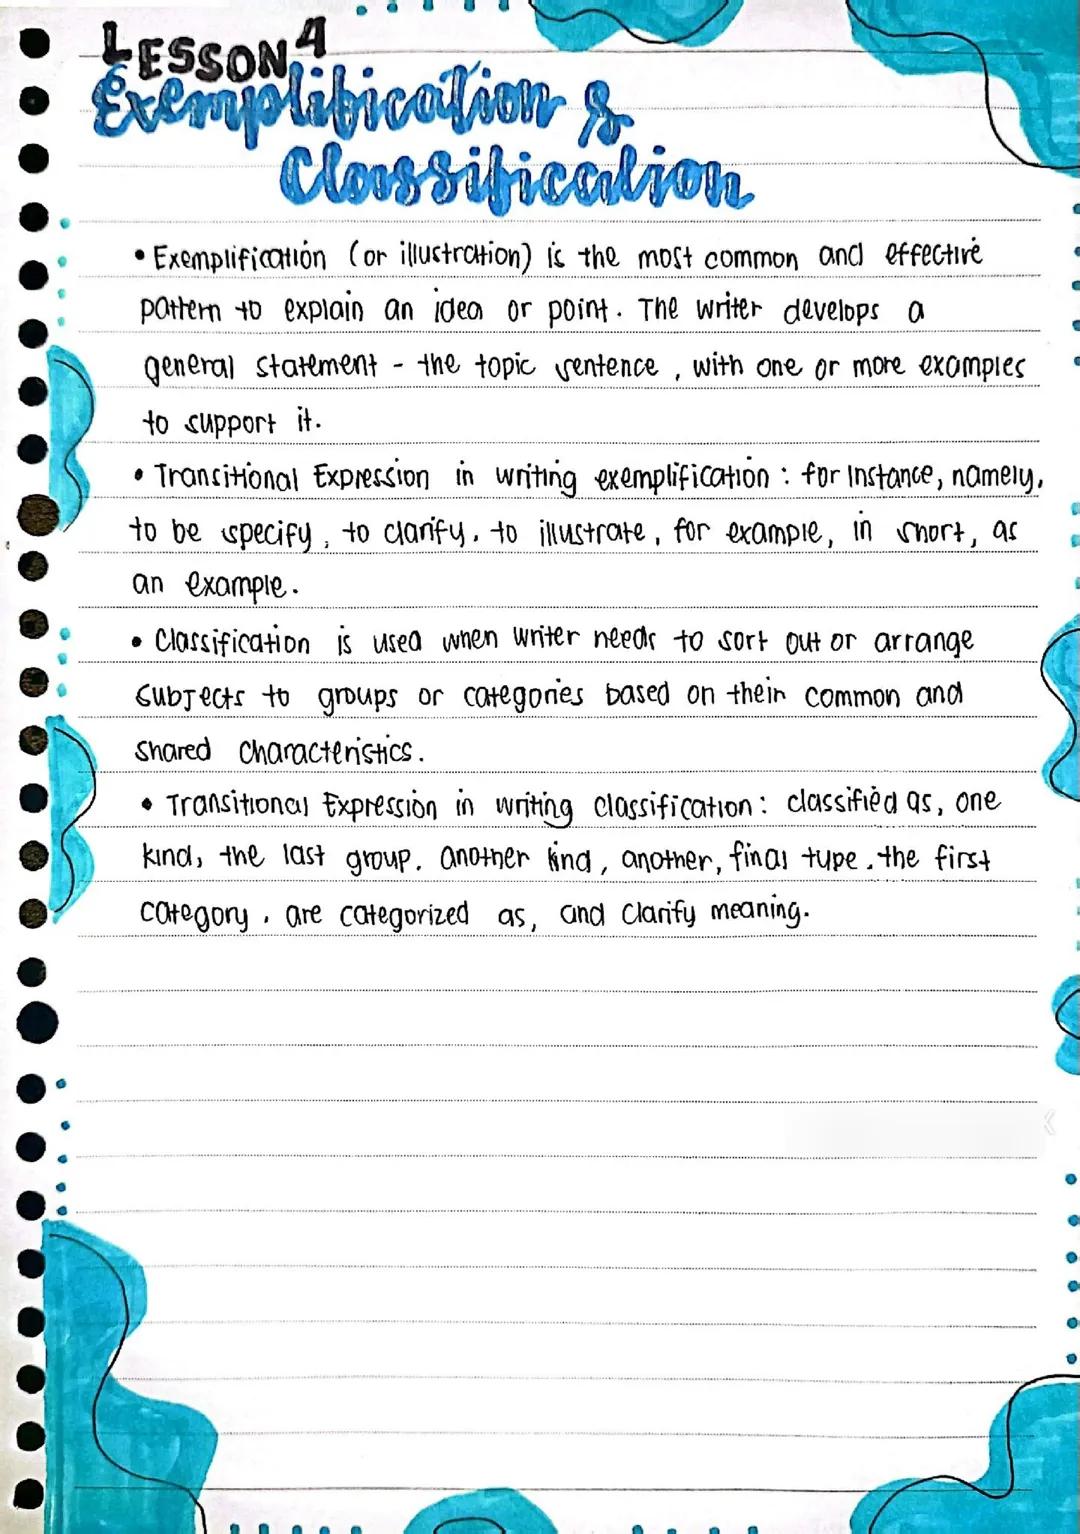 LESSON 4
Exemplification &
Classification
• Exemplification (or illustration) is the most common and effective
pattern to explain an idea or point. The writer develops a
general statement - the topic sentence, with one or more examples
to support it.
• Transitional Expression in writing exemplification : for Instance, namely,
to be specify, to clarify, to illustrate, for example, in short, as
an example.
• Classification is used when writer needs to sort out or arrange
subjects to groups or categories based on their common and
shared characteristics.
• Transitional Expression in writing classification : classified as, one
kind, the last group. another kind, another, final type, the first
category, are categorized as, and clarify meaning.